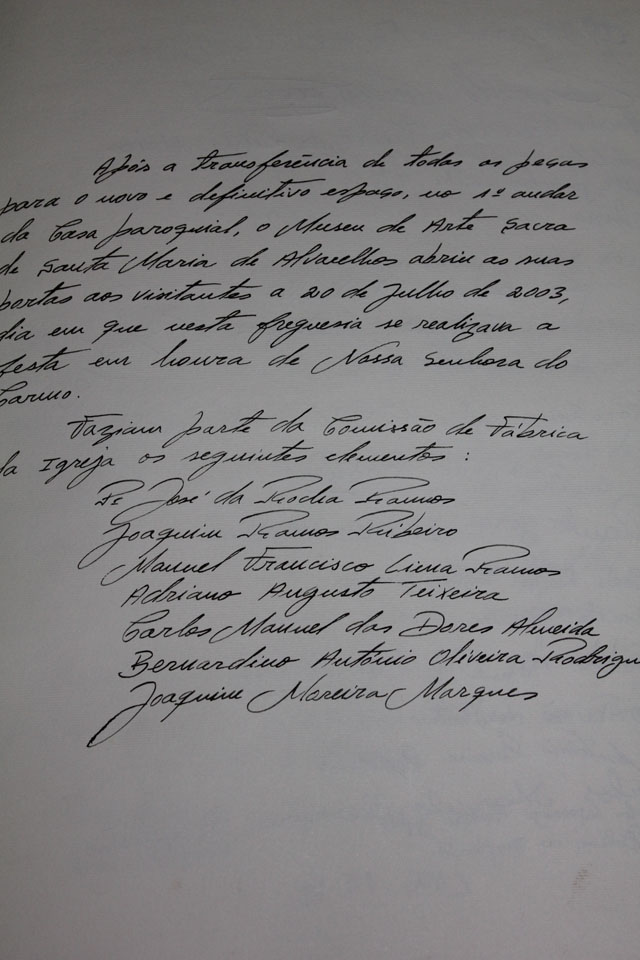 Após a transferência de todas as peças
para o novo e definitivo espaço, no 1º andar
da Casa paroquial, o Museu de Arte Sacra
de Santa Maria de Alvarelhos abriu as suas
portas aos visitantes a 20 de Julho de 2003,
dia em que nesta freguesia se realizava a
festa em honra de Nossa Senhora do
Carmo.
Faziam parte da Comissão de Fábrica
da Igreja os seguintes elementos:
Pe José da Rocha Ramos
Joaquim Ramos Ribeiro
Manuel Francisco Lima Ramos
Adriano Augusto Teixeira
Carlos Manuel das Dores Almeida
Bernardino António Oliveira Rodrigu
Joaquim Moreira Marques